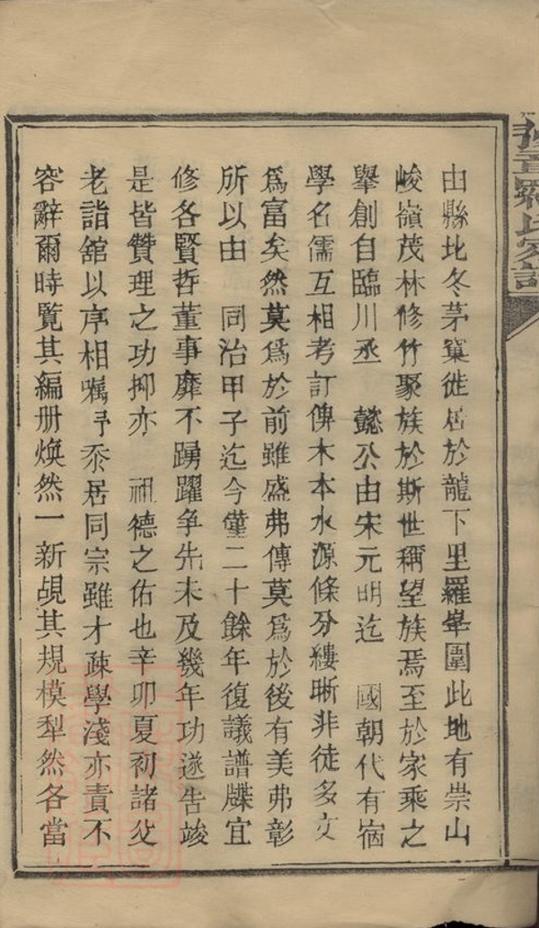 豫章羅氏家譜
由縣北冬茅窠徙居於龍下里羅峯圍此地有崇山
峻嶺茂林修竹聚族於斯世稱望族焉至於家乘之
舉創自臨川丞 懿公由宋元明迄 國朝代有宿
學名儒互相考訂俾木本水源條分縷晰非徒多文
爲富矣然莫爲於前雖盛弗傳莫爲於後有美弗彰
所以由 同治甲子迄今僅二十餘年復議譜牒宜
修各賢哲董事靡不踴躍爭先未及幾年功遂告竣
是皆贊理之功抑亦 祖德之佑也辛卯夏初諸父
老詣舘以序相嘱予忝居同宗雖才疎學淺亦責不
容辭爾時覽其編册煥然一新覘其規模犁然各當